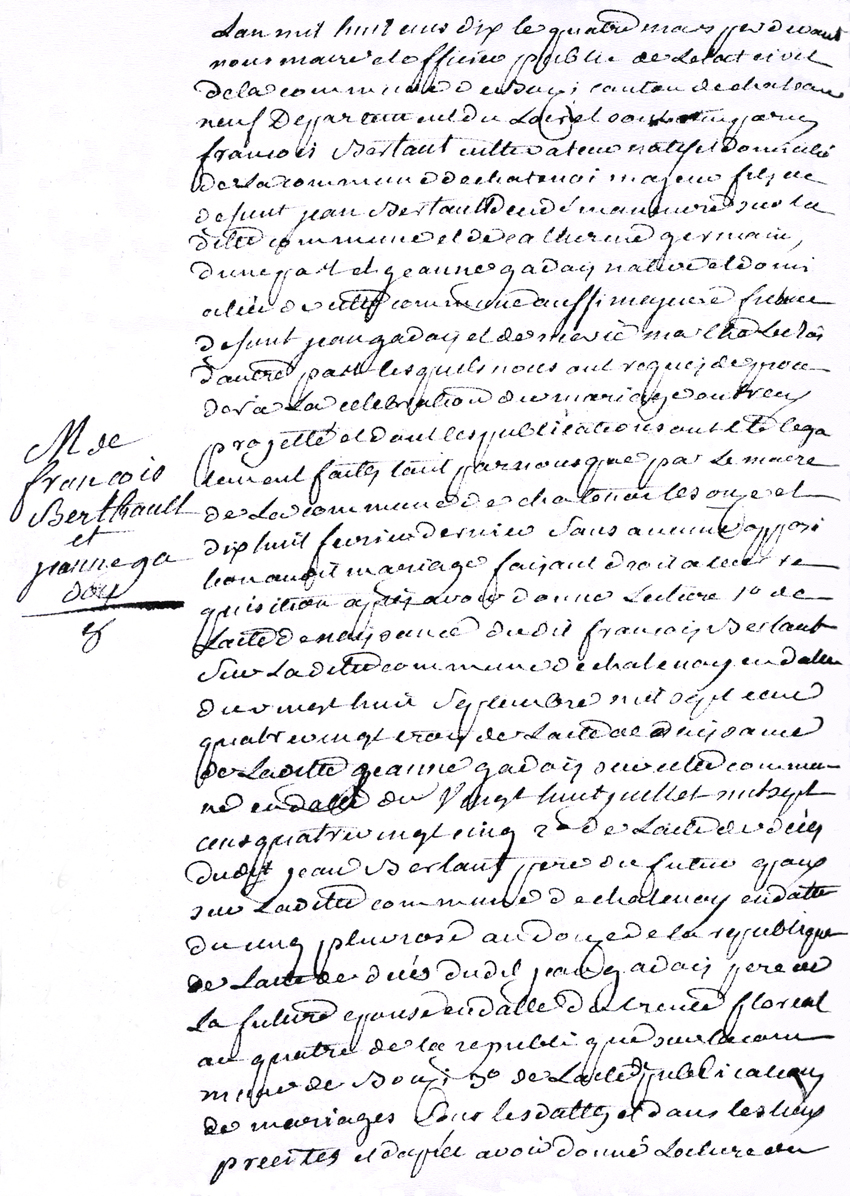 Lan mil huit cens dix le quatre mars par devant
nous maire et officier public de Letat civil
de la commune de canton de chateau
neuf Departement du Loiret sont comparus
françois Bertaut cultivateur natif et domicilié
de La commune de chatenoi majeur fils de
defunt jean Bertault decedé manoeuvre sur la
ditte commune et de catherine germain,
d'une part et jeanne gadoy native et domi
ciliée de cette commune aussi majeure fille de
defunt jean gadoy et de marie
d'autre part lesquels nous ont requis de proce
der a La celebration du mariage entreux
projetté et dont les publications ont été lega
lement faites tant par nous que par Le maire
de La commune de chatenoi les onze et
dix huit fevrier dernier Sans aucune opposi
tion audit mariage faisant droit a leur re
quisition apres avoir donné Lecture 1o de
Lacte de naissance dudit françois Bertaut
Sur Laditte commune de chatenoy en datte
du vingt huit Septembre mil sept cent
quatre vingt trois de Lacte de naissance
de Laditte jeanne gadoy sur cette commu-
ne en datte du Vingt huit juillet mil sept
cens quatre vingt cinq 2o de Lacte de décès
dudit jean Bertaut pere du futur epoux
sur Laditte commune de chatenoy en datte
du cinq pluviose an douze de la republique
de Lacte de décès dudit jean gadoy pere de
la future epouse en datte du trente floreal
an quatre de la republique sur la com
mune de Bouzi 3o de Lacte de publications
de mariages Sur les dattes et dans les lieux
precites et d'apres avoir donné Lecture du
M de
françois
Berthault
et
jeanne ga
doy